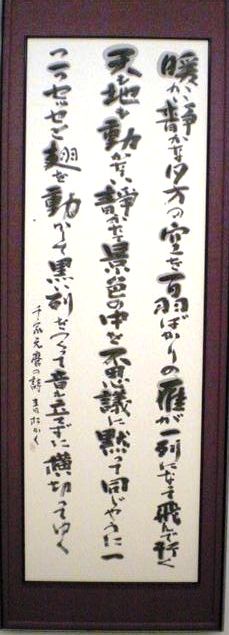 暖い静かな夕方の空を百羽ばかりの雁が一列になって飛んで行く
天も地も動かない静かな景色の中を不思議に黙って同じやうに一
つ一つセッセと翅を動かして黒い列をつくって音も立てずに横切ってゆく
千家元麿の詩